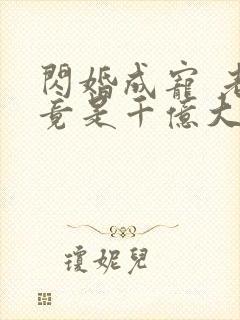 閃婚成寵 老
竟是千億大
瓊妮兒